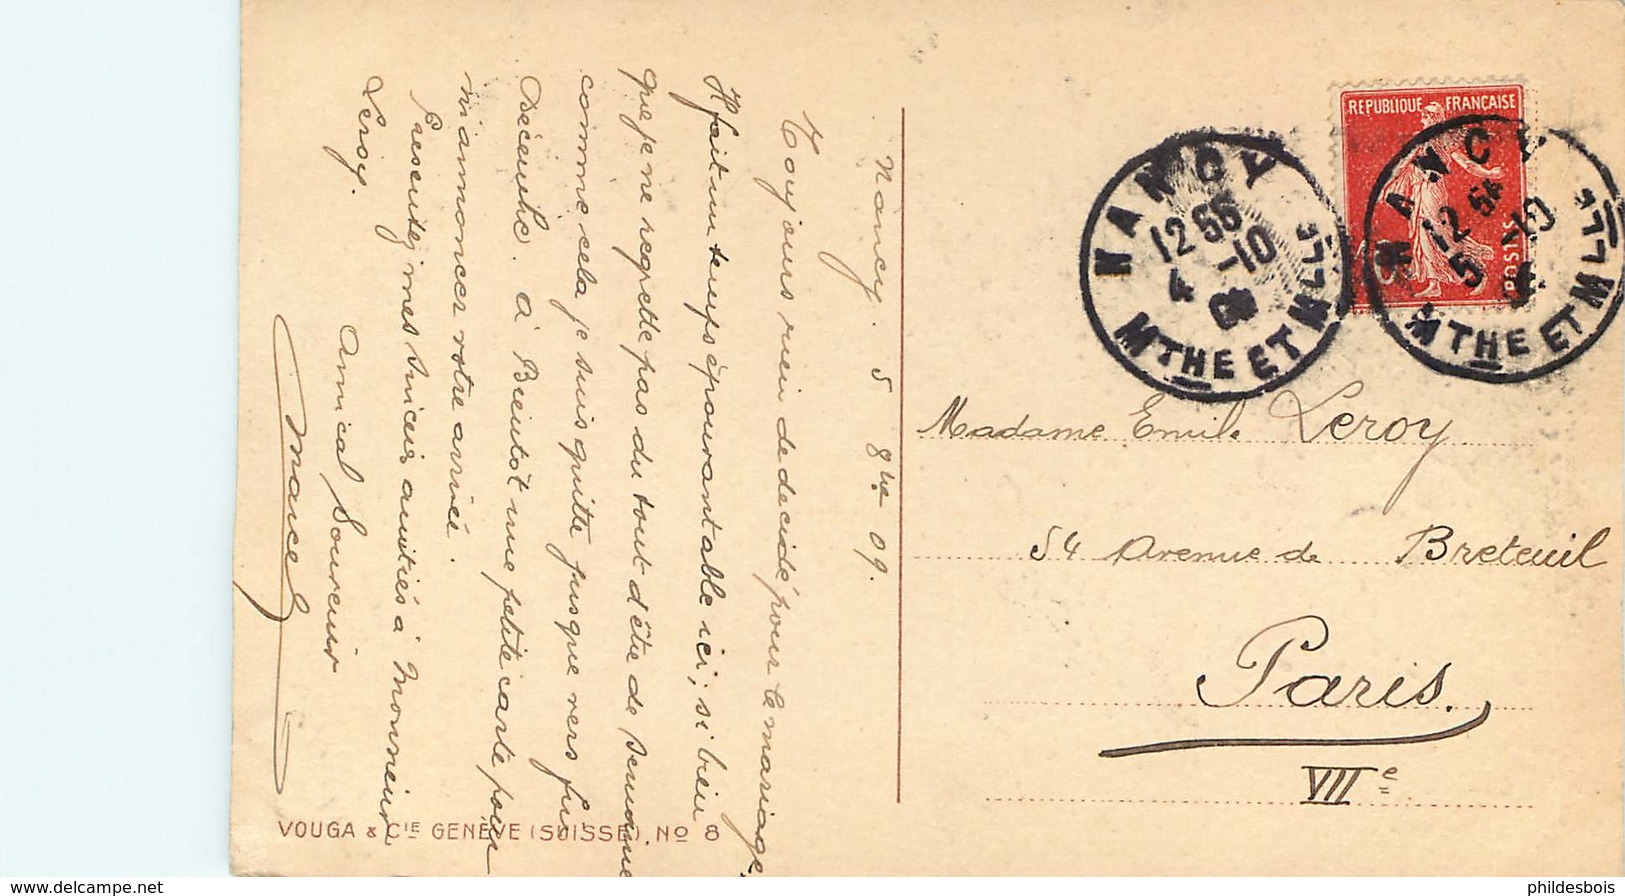 Nancy. 5 8bre 09.
Toujours rien de decidé pour le mariage.
Il fait un temps épouvantable ici; si bien
que je ne regrette pas du tout d'être de semaine
comme cela je suis quitte jusque vers fin
Décembre. à Bientôt une petite carte pour
m'annoncer votre arrivée.
Presentez mes sincères amitiés à Monsieur
Leroy.
Amical Souvenir
Marcel
VOUGA & CIE GENÈVE (SUISSE). No 8
REPUBLIQUE FRANÇAISE
POSTES
NANCY
12 55
4 -10
MTHE ET MLLE
NANCY
12
5 -10
MTHE ET MLLE
Madame Emile Leroy
54 Avenue de Breteuil
Paris.
VIIe
www.delcampe.net
phildesbois